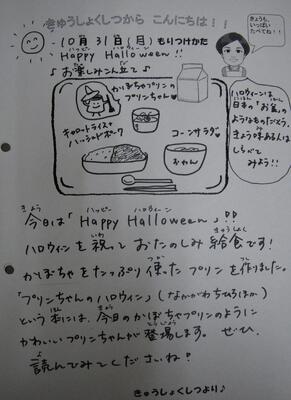 きゅうしょくしつから こんにちは!!
10月31日(月)もりつけかた
ハッピー ハロウィーン
Happy Halloween!!
♪お楽しみこん立て♪
きょうも、
いっぱい
たべてね!!
かぼちゃプリンの
プリンちゃん♥
キャロットライス
ハッシュドポーク
コーンサラダ
おわん
ハロウィーンは、
日本の「お盆」の
ようなものだそう。
きょうみがある人は
しらべて
みよう!!
きょう ハッピー ハロウィーン
今日は「Happy Halloween」!!
いわ きゅうしょく
ハロウィーンを祝っておたのしみ給食です!
つか つく
かぼちゃをたっぷり使ったプリンを作りました。
「プリンちゃんのハロウィン」(なかがわちひろほか)
ほん きょう
という本には、今日のかぼちゃプリンのように
とうじょう
かわいいプリンちゃんが登場します。ぜひ、
よ
読んでみてくださいね!
きゅうしょくしつより♪